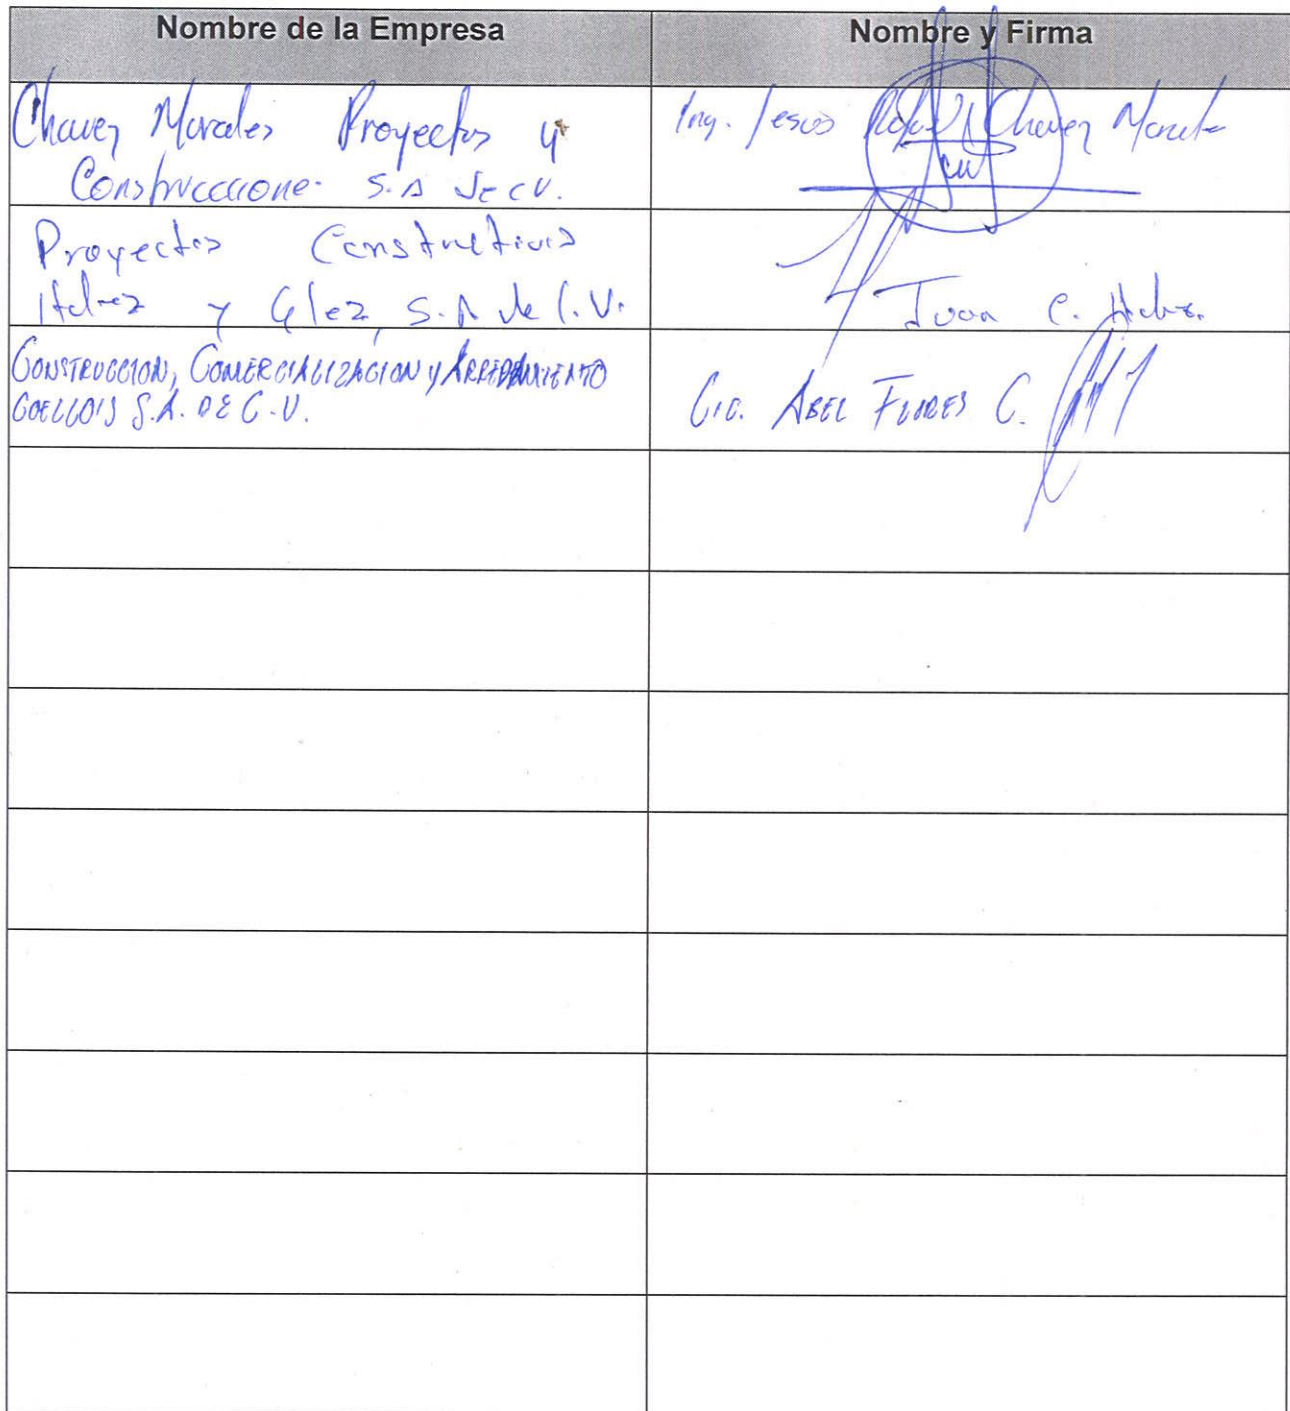 Nombre de la Empresa
Nombre y Firma
Chavez Morales Proyectos y
Construcccione S.A de CV.
Ing. Jesus Rafael Chavez Morale
Proyectos Constructivos
y Glez, S.A de C.V.
Juan C.
CONSTRUCCION, COMERCIALIZACION y ARRENDAMIENTO
S.A. DE C.V.
Lic. ABEL FLORES C.